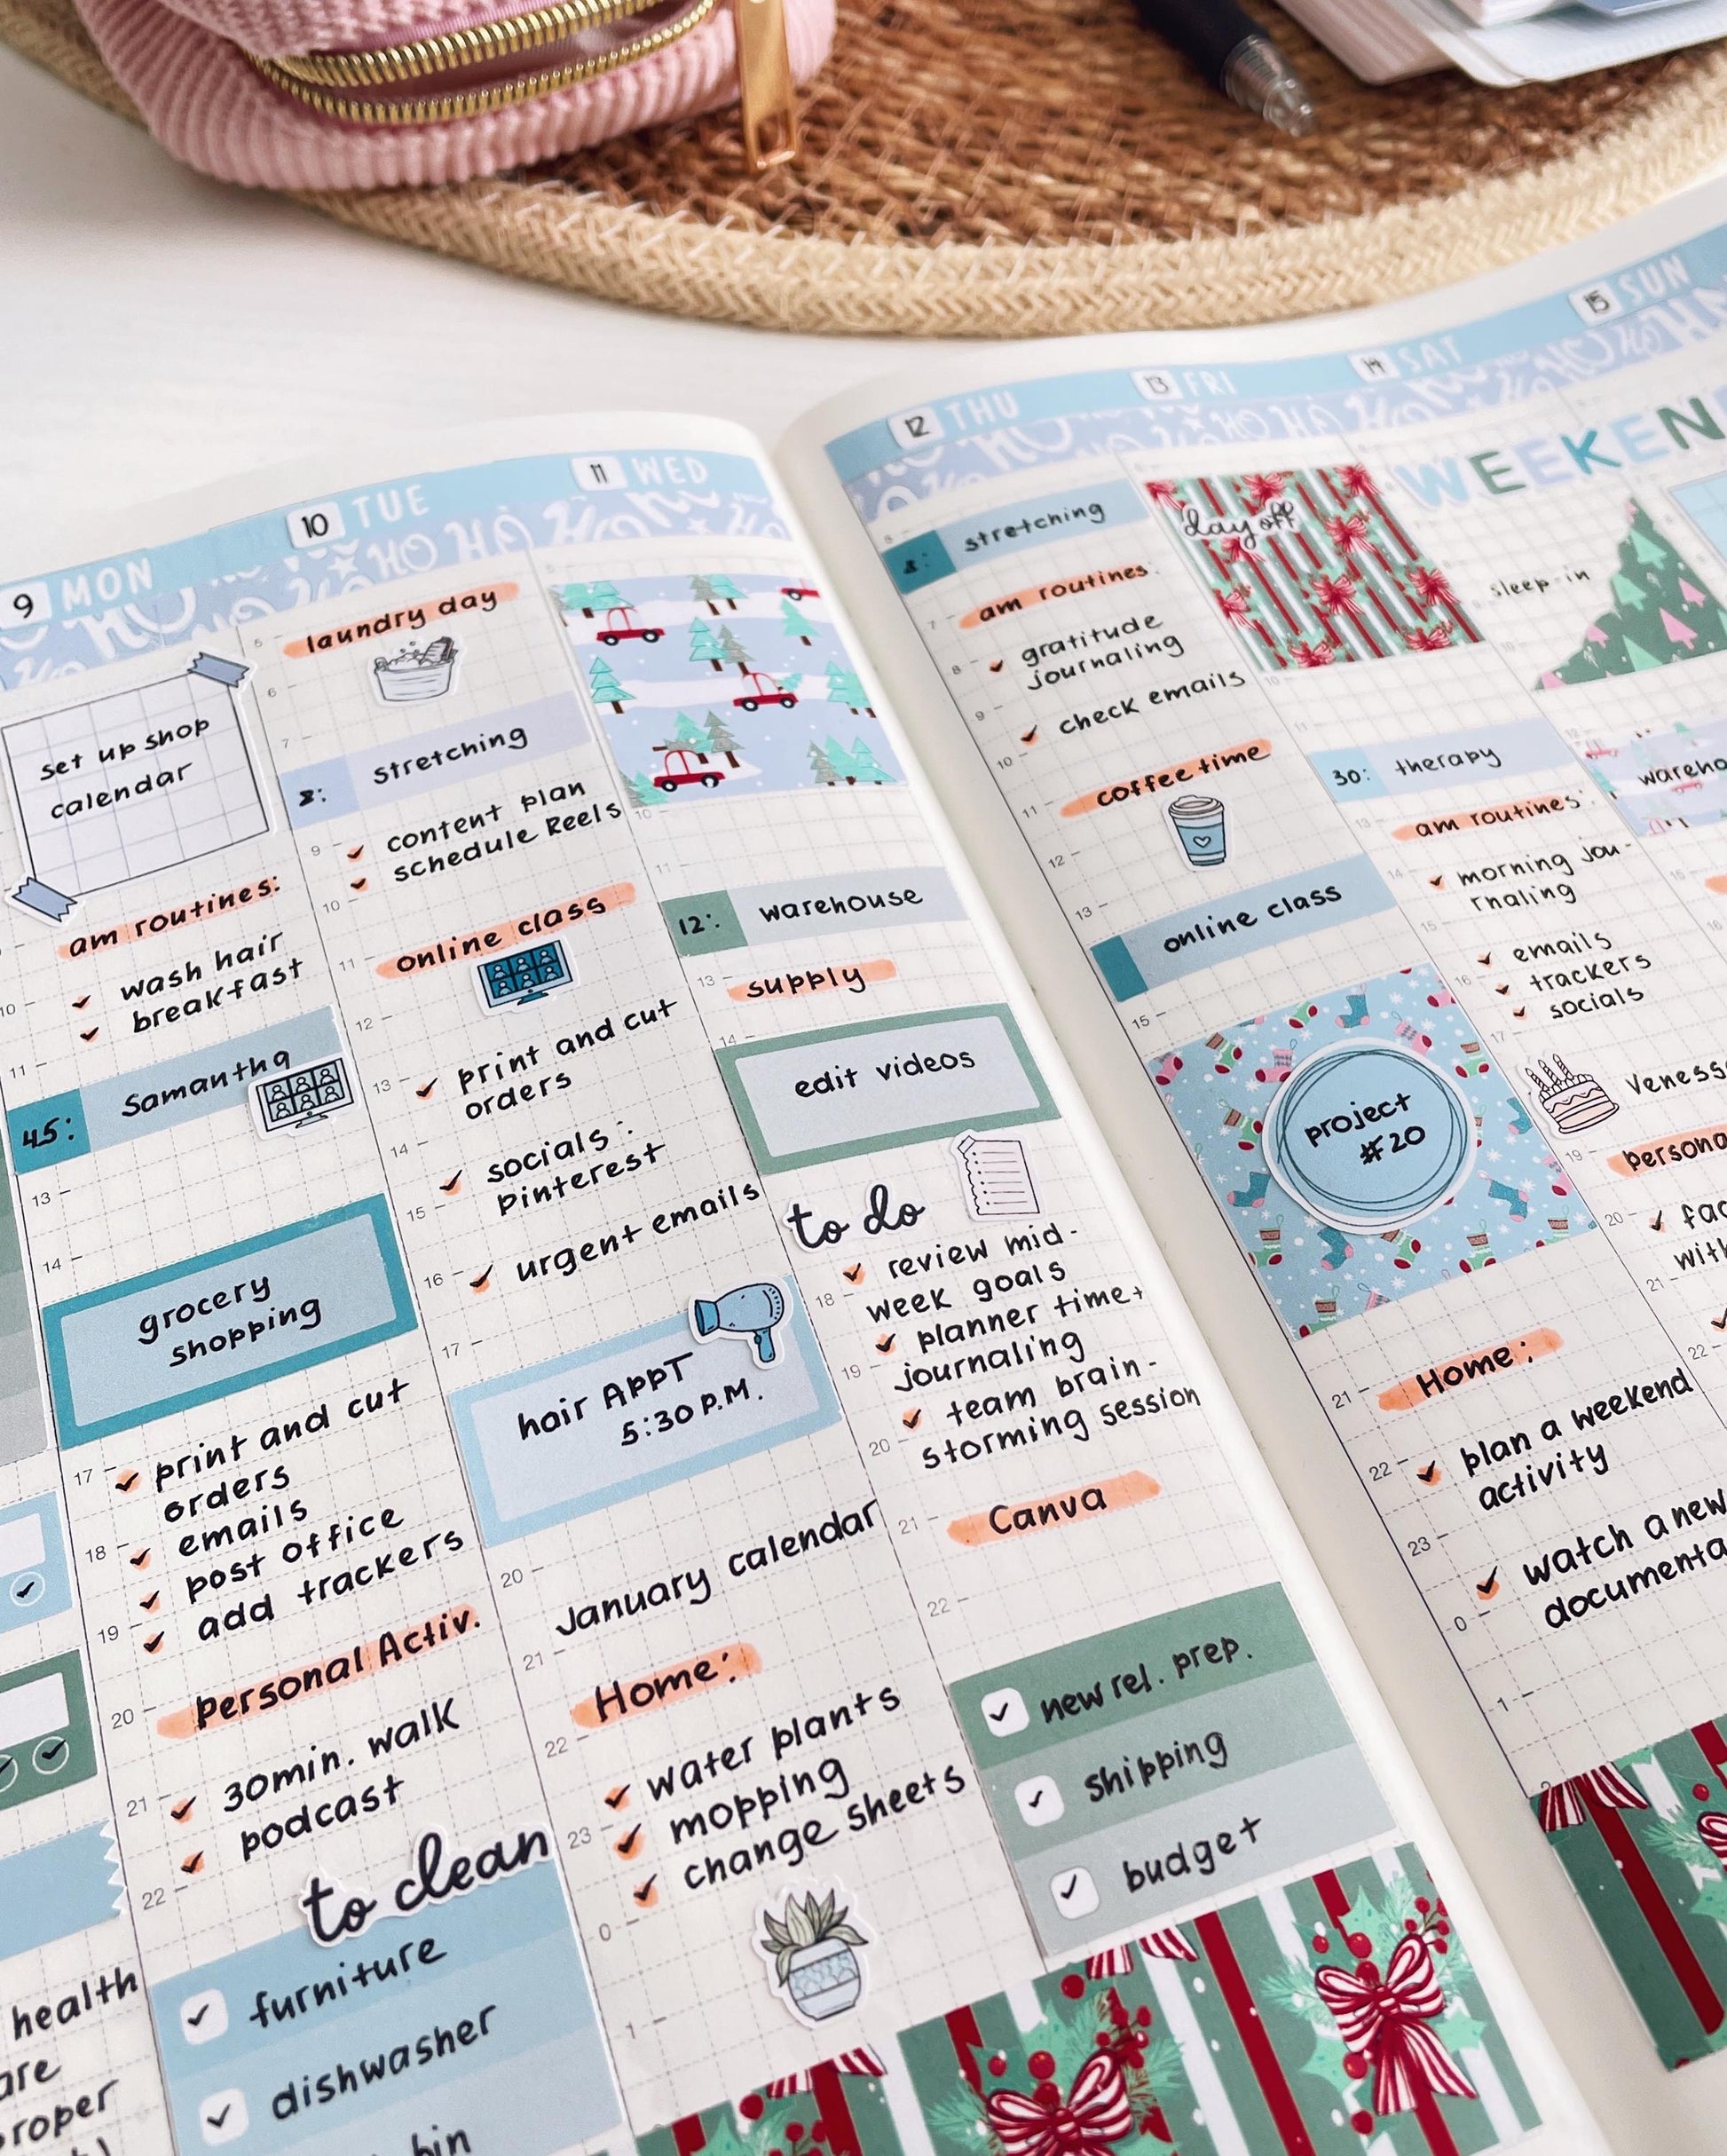 9 MON
set up shop
calendar
am routines:
wash hair
breakfast
11
45: Samantha
13
14
grocery
shopping
17
print and cut
orders
18
emails
post office
19
add trackers
20
Personal Activ.
21
30min. walk
podcast
22
to clean
furniture
dishwasher
bin
health
10 TUE
5
laundry day
6
7
8: stretching
9
content plan
schedule Reels
10
online class
11
12
13
print and cut
orders
14
socials:
pinterest
15
16
urgent emails
17
hair APPT
5:30 P.M.
20
January calendar
21
Home:
22
water plants
mopping
23
change sheets
0
1
11 WED
10
11
12: warehouse
13
supply
14
edit videos
to do
review mid-
18
week goals
planner time+
19
journaling
team brain-
20
storming session
21
Canva
22
new rel. prep.
shipping
budget
12 THU
8: stretching
7
am routines
8
gratitude
journaling
9
check emails
10
coffee time
11
12
13
online class
15
project
#20
21
Home:
22
plan a weekend
activity
23
watch a new
0
documenta
1
13 FRI
day off
10
11
30: therapy
13
am routines:
14
morning jou-
rnaling
15
emails
16
trackers
socials
17
Veness
19
persona
20
fac
with
21
22
14 SAT
15 SUN
WEEKEN
sleep-in
wareho